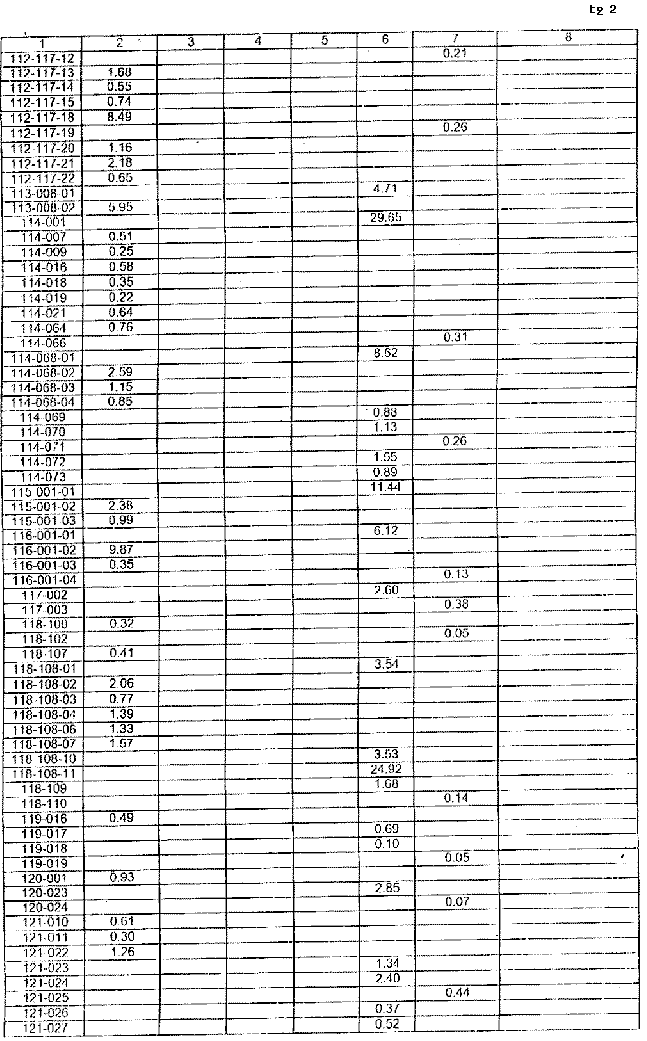 tg 2
1 2 3 4 5 6 7 8
112-117-12 0.21
112-117-13 1.68
112-117-14 0.55
112-117-15 0.74
112-117-18 8.49
112-117-19 0.26
112-117-20 1.16
112-117-21 2.18
112-117-22 0.65
113-008-01 4.71
113-008-02 5.95
114-001 29.65
114-007 0.51
114-009 0.25
114-016 0.58
114-018 0.35
114-019 0.22
114-021 0.64
114-064 0.76
114-066 0.31
114-068-01 8.62
114-068-02 2.59
114-068-03 1.15
114-068-04 0.85
114-069 0.88
114-070 1.13
114-071 0.26
114-072 1.55
114-073 0.89
115-001-01 11.44
115-001-02 2.38
115-001-03 0.99
116-001-01 6.12
116-001-02 9.87
116-001-03 0.35
116-001-04 0.13
117-002 2.60
117-003 0.38
118-100 0.32
118-102 0.05
118-107 0.41
118-108-01 3.54
118-108-02 2.06
118-108-03 0.77
118-108-04 1.39
118-108-06 1.33
118-108-07 1.57
118-108-10 3.53
118-108-11 24.92
118-109 1.68
118-110 0.14
119-016 0.49
119-017 0.69
119-018 0.10
119-019 0.05
120-001 0.93
120-023 2.85
120-024 0.07
121-010 0.61
121-011 0.30
121-022 1.26
121-023 1.34
121-024 2.40
121-025 0.44
121-026 0.37
121-027 0.52